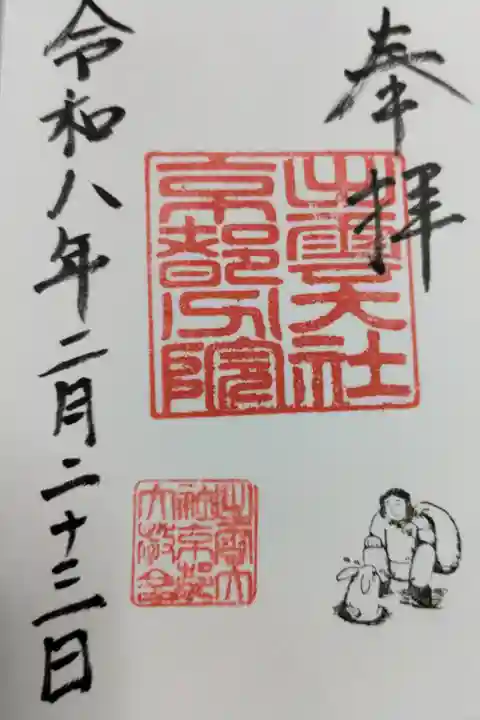 奉拝
出雲大社
京都分院
令和八年二月二十三日